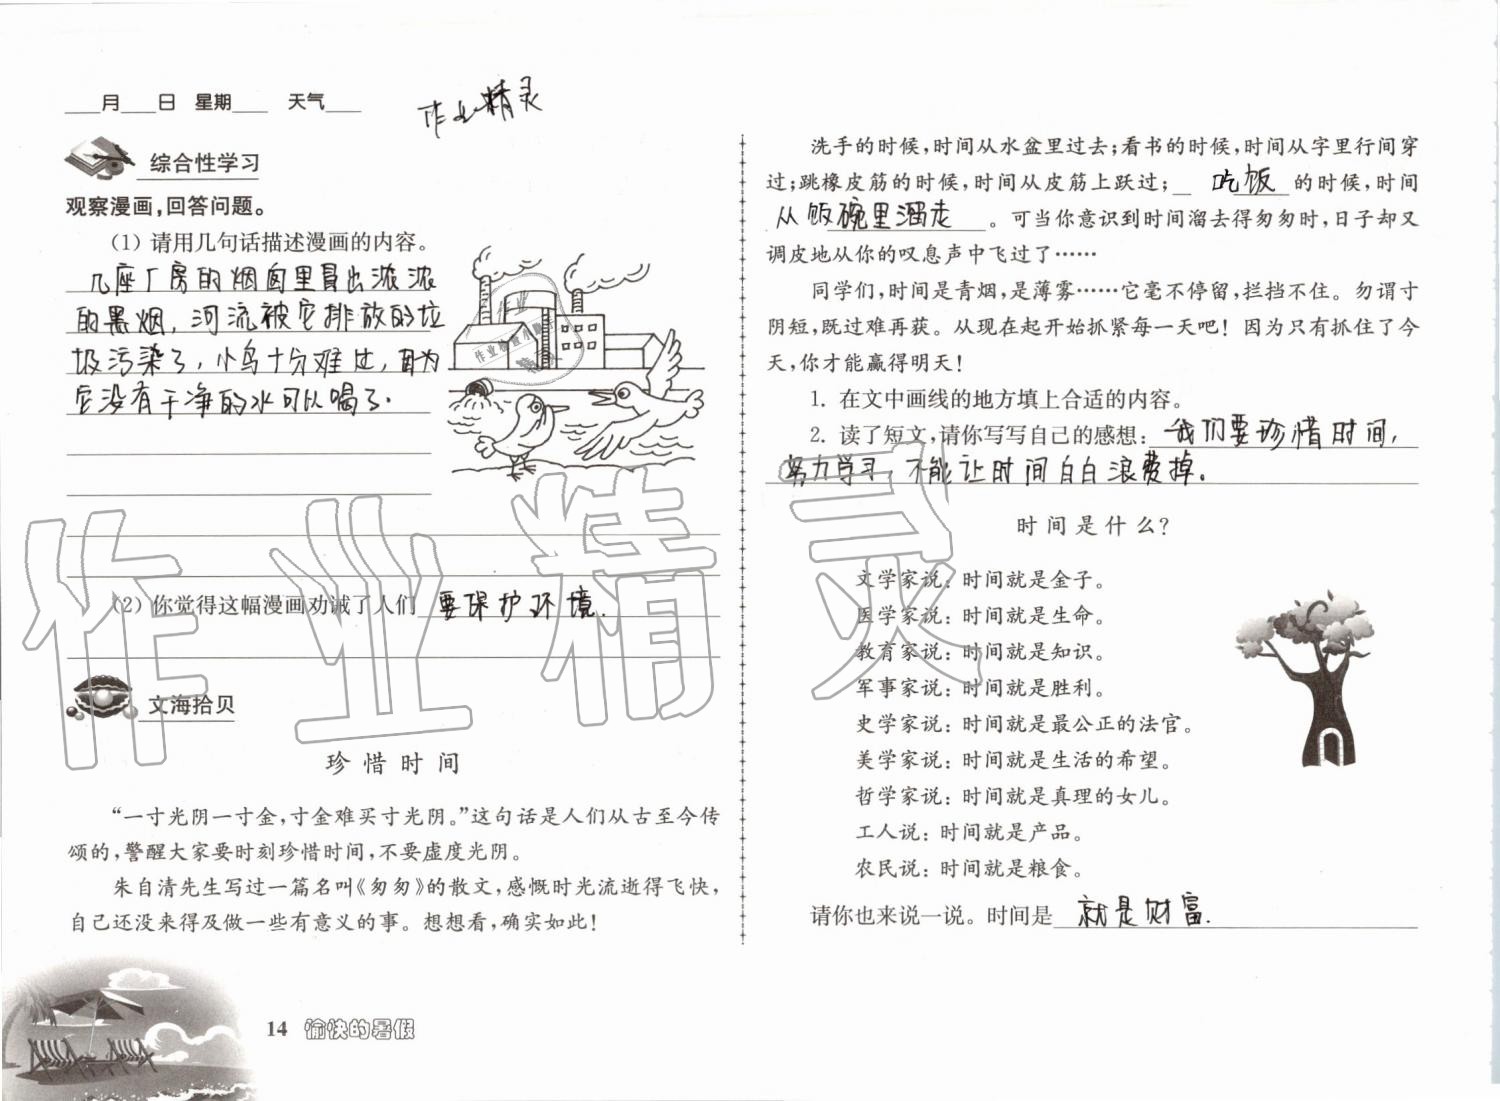 ___月___日 星期___ 天气___
作业精灵
综合性学习
观察漫画,回答问题。
(1) 请用几句话描述漫画的内容。
几座厂房的烟囱里冒出浓浓
的黑烟,河流被它排放的垃
圾污染了,小鸟十分难过,因为
它没有干净的水可以喝了.
(2) 你觉得这幅漫画劝诫了人们 要保护环境.
文海拾贝
珍惜时间
“一寸光阴一寸金,寸金难买寸光阴。”这句话是人们从古至今传
颂的,警醒大家要时刻珍惜时间,不要虚度光阴。
朱自清先生写过一篇名叫《匆匆》的散文,感慨时光流逝得飞快,
自己还没来得及做一些有意义的事。想想看,确实如此!
14 愉快的暑假
洗手的时候,时间从水盆里过去;看书的时候,时间从字里行间穿
过;跳橡皮筋的时候,时间从皮筋上跃过; 吃饭 的时候,时间
从饭碗里溜走 。可当你意识到时间溜去得匆匆时,日子却又
调皮地从你的叹息声中飞过了……
同学们,时间是青烟,是薄雾……它毫不停留,拦挡不住。勿谓寸
阴短,既过难再获。从现在起开始抓紧每一天吧!因为只有抓住了今
天,你才能赢得明天!
1. 在文中画线的地方填上合适的内容。
2. 读了短文,请你写写自己的感想: 我们要珍惜时间,
努力学习,不能让时间白白浪费掉。
时间是什么?
文学家说:时间就是金子。
医学家说:时间就是生命。
教育家说:时间就是知识。
军事家说:时间就是胜利。
史学家说:时间就是最公正的法官。
美学家说:时间就是生活的希望。
哲学家说:时间就是真理的女儿。
工人说:时间就是产品。
农民说:时间就是粮食。
请你也来说一说。时间是 就是财富.
作业精灵